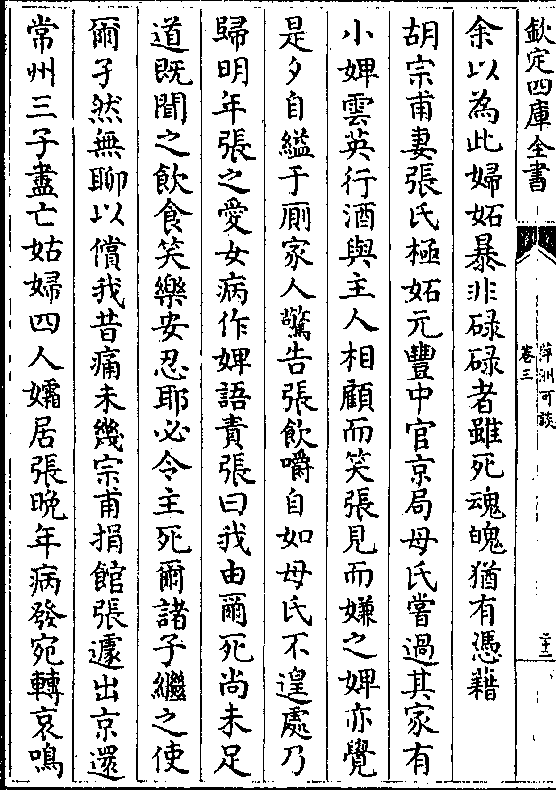 欽定四庫全書
萍洲可談
卷三
二十二
余以為此婦妬暴非碌碌者雖死魂魄猶有憑藉
胡宗甫妻張氏極妬元豐中官京局母氏嘗過其家有
小婢雲英行酒與主人相顧而笑張見而嫌之婢亦覺
是夕自縊于廁家人驚告張飲嚼自如母氏不遑處乃
歸明年張之愛女病作婢語責張曰我由爾死尚未足
道既聞之飲食笑樂安忍耶必令主死爾諸子繼之使
爾孑然無聊以償我昔痛未幾宗甫捐館張遽出京還
常州三子盡亡姑婦四人孀居張晚年病發宛轉哀鳴